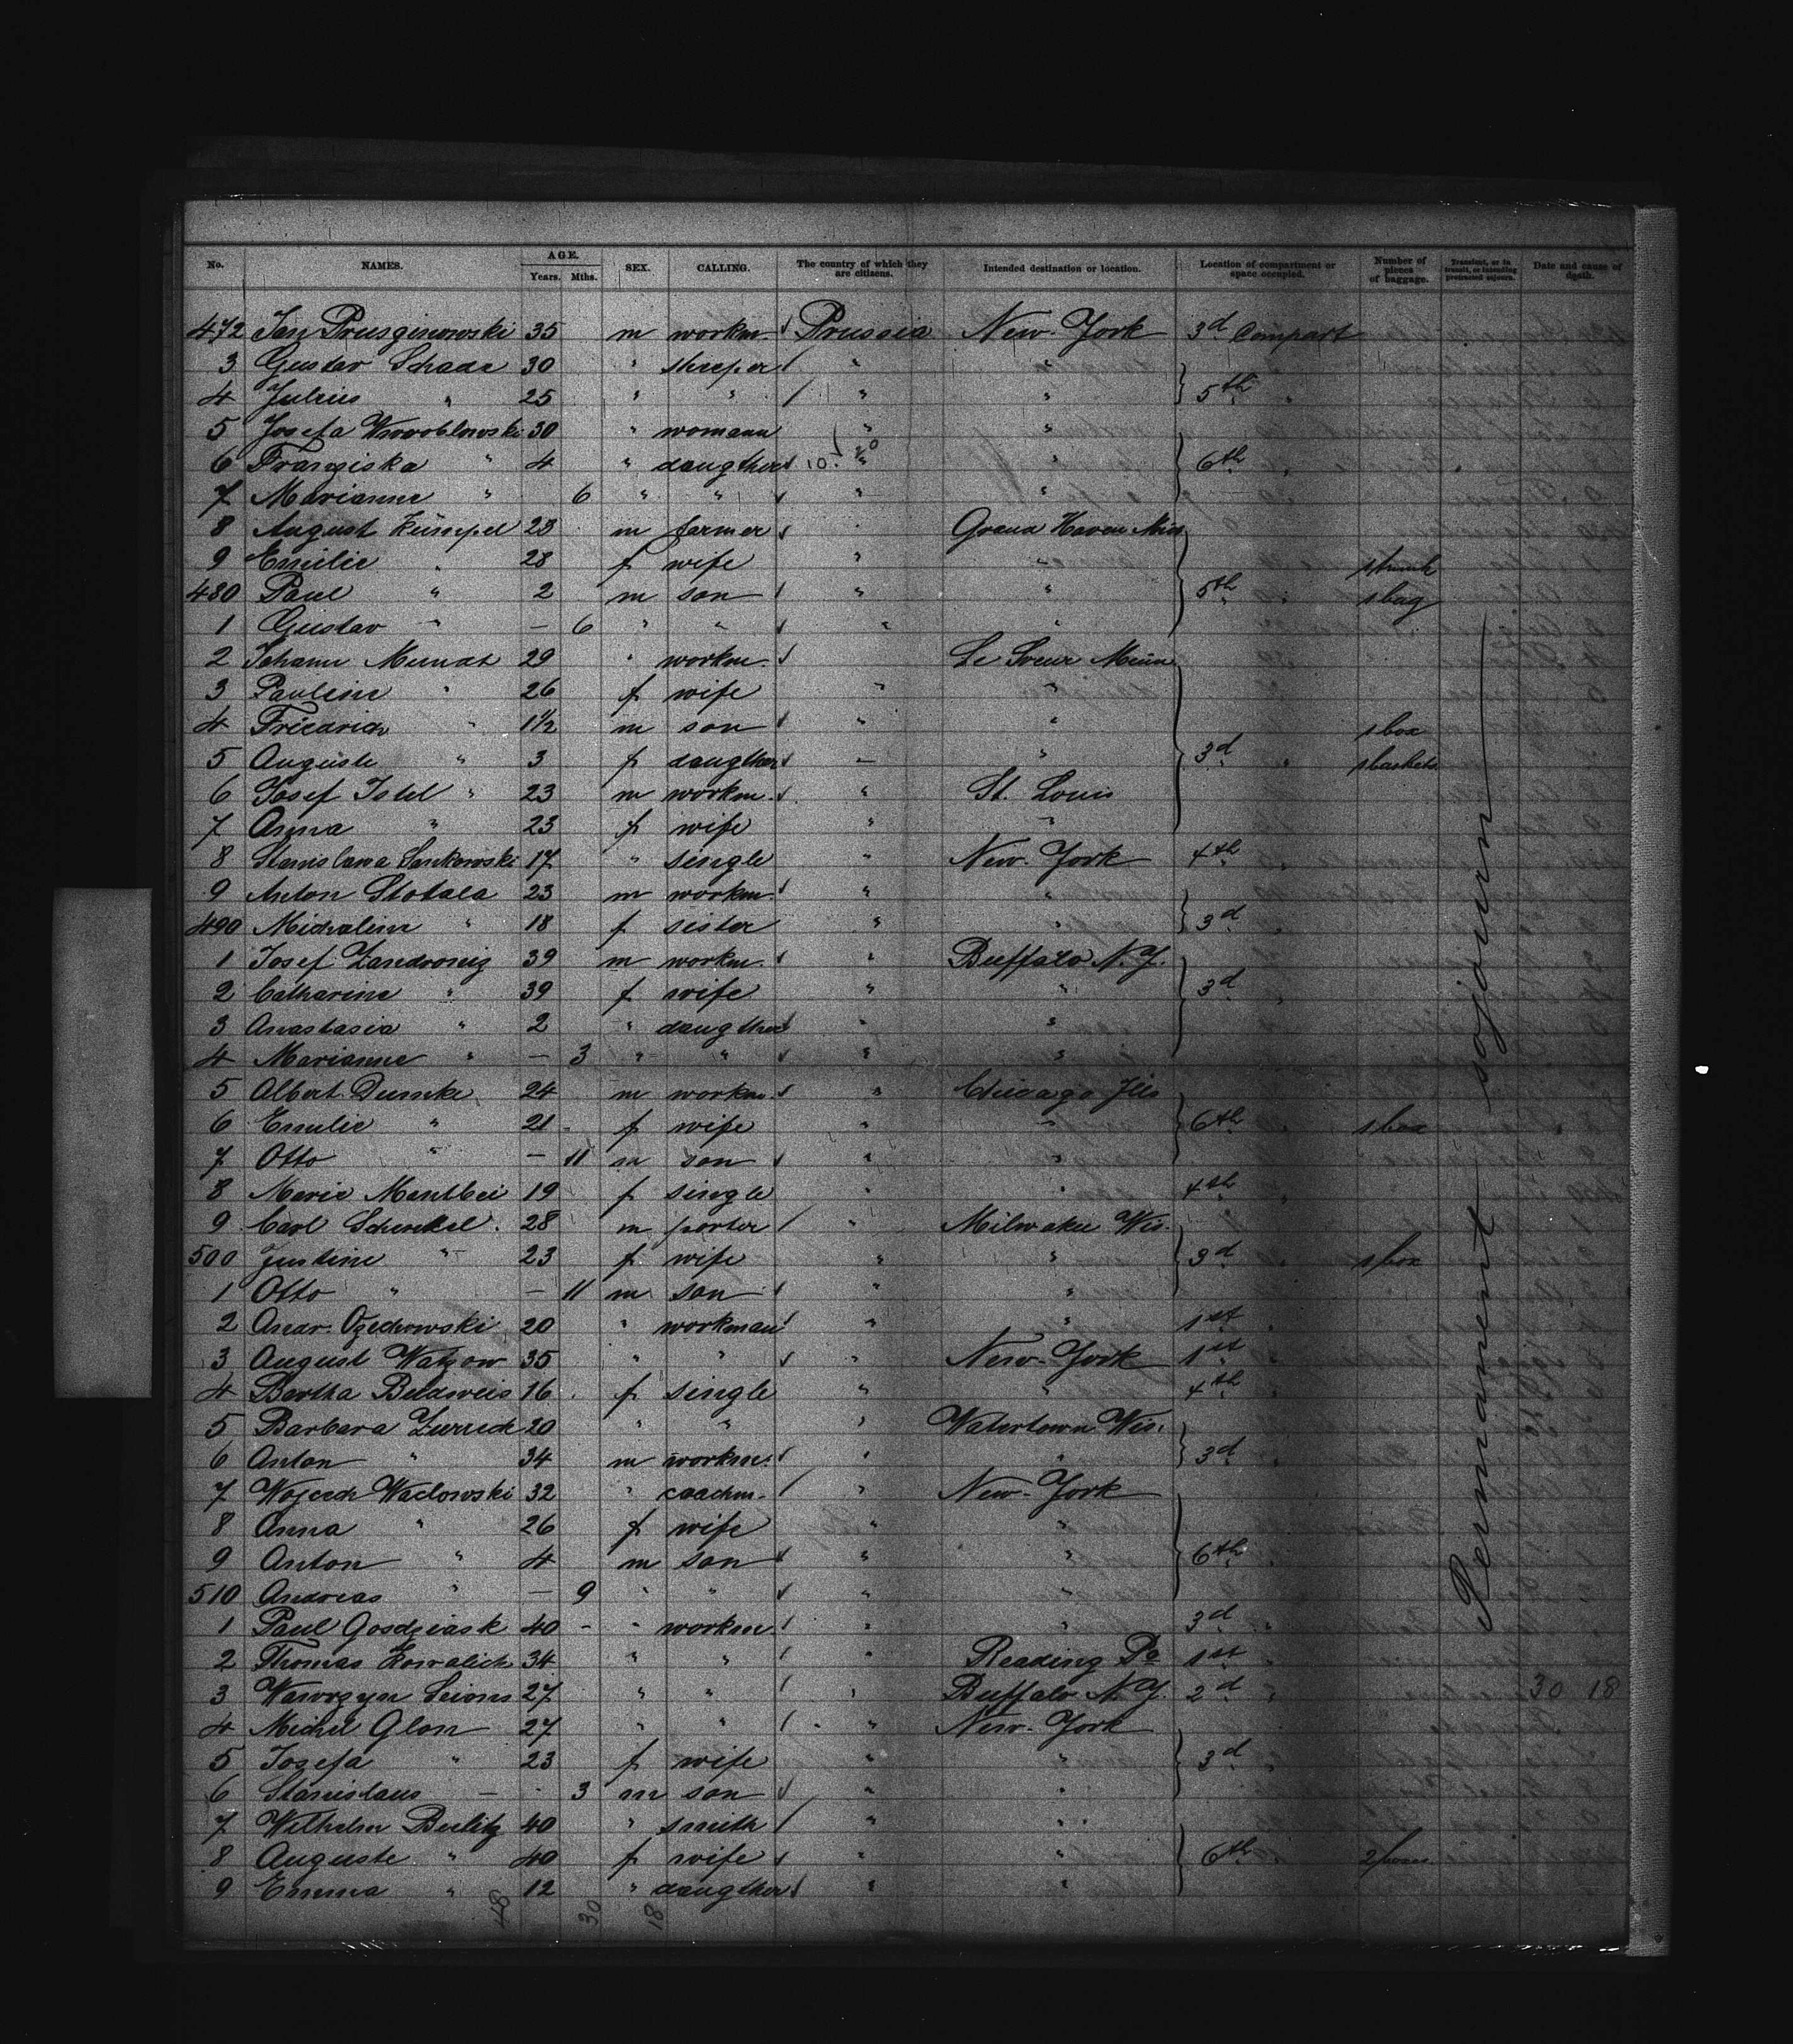 No. NAMES. AGE. Years. Mths. SEX. CALLING. The country of which they are citizens. Intended destination or location. Location of compartment or space occupied. Number of pieces of baggage. Transient, or in transit, or intending protracted sojourn. Date and cause of death.
472 Jan Prusginowski 35 m workm. Prussia New-York 3d Compart
3 Gustav Schade 30 " " "
4 Julius " 25 " " " " 5th "
5 Josefa Wrovoblowski 30 " womann " "
6 Franziska " 4 " daugther " " 6th "
7 Marianne " 6 " " " "
8 August Kümpel 23 m farmer " Grand Haven Mich
9 Emilie " 28 f wife " "
480 Paul " 2 m son " " 5th " 1 bag
1 Gustav " — 6 " " " "
2 Johann Mundt 29 " workm. Le Sueur Minn
3 Pauline " 26 f wife " "
4 Friedrich " 1½ m son " " 1 box
5 Auguste " 3 f daugther — " 3d "
6 Josef " 23 m workm. " St. Louis
7 Anna " 23 f wife " "
8 Stanislawa Sankowski 17 " single " New-York 4th
9 Anton Stotala 23 m workm. " "
490 " 18 f sister " " 3d "
1 Josef 39 m workm. " Buffalo N.Y.
2 Catharine " 39 f wife " " 3d "
3 Anastasia " 2 " daugther " "
4 Marianne " — 3 " " " "
5 Albert Dumke 24 m workm. " Chicago Ills
6 Emilie " 21 f wife " " 6th " 1 box
7 Otto " — 11 m son " "
8 Marie Manthei 19 f single " " 4th "
9 Carl Schinkel. 28 m porter " Milwakee Wis.
500 Justine " 23 f wife " " 3d " 1 box
1 Otto " — 11 m son " "
2 Andr. Ozechowski 20 " workman " " 1st "
3 August Watzow 35 " " " New-York 1st "
4 Bertha 16 f single " " 4th "
5 Barbara 20 " " " Watertown Wis.
6 Anton " 34 m workm. " " 3d "
7 Wojcech Waclowski 32 " coachm. " New-York
8 Anna " 26 f wife " "
9 Anton " 4 m son " " 6th "
510 Andreas " — 9 " " " "
1 Paul Gosdziask 40 - " workm. " " 3d "
2 Thomas Kowalich 34 " " Reading Pa 1st "
3 Wawrzyn 27 " " " Buffalo N.Y. 2d " 30 18
4 Michel Glon 27 " " " New-York
5 Josefa " 23 f wife " " 3d "
6 Stanislaus — - 3 m son " "
7 Wilhelm Beilitz 40 " smith " "
8 Auguste " 40 f wife " " 6th " 2 boxes
9 Emma " 12 " daugther " "
48 30 18
Permanent sojourn